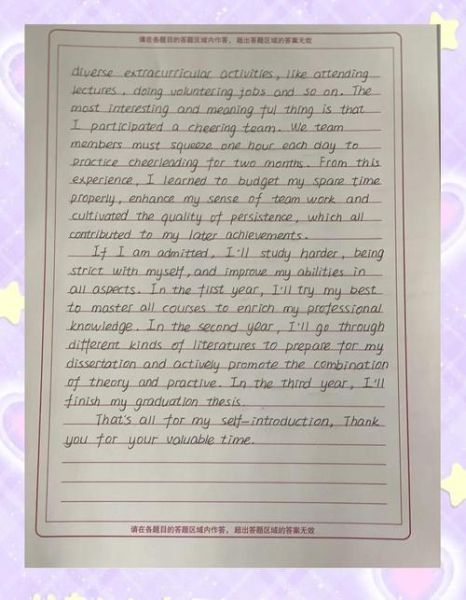 请在各题目的答题区域内作答，超出答题区域的答案无效
diverse extracurricular activities, like attending
lectures, doing voluntering jobs and so on. The
most interesting and meaning ful thing is that
I participated a cheering team. We team
members must squeeze one hour each day to
practice cheerleading for two months. From this
experience, I learned to budget my spare time
properly, enhance my sense of team work and
cultivated the quality of persistence, which all
contributed to my later achievements.
If I am admitted, I'll study harder, being
strict with myself, and improve my abilities in
all aspects. In the first year, I'll try my best
to master all courses to enrich my professional
knowledge. In the second year, I'll go through
different kinds of literatures to prepare for my
dissertation and actively promote the combination
of theory and practive. In the third year, I'll
finish my graduation thesis.
That's all for my self-introduction, Thank
you for your valuable time.
请在各题目的答题区域内作答，超出答题区域的答案无效